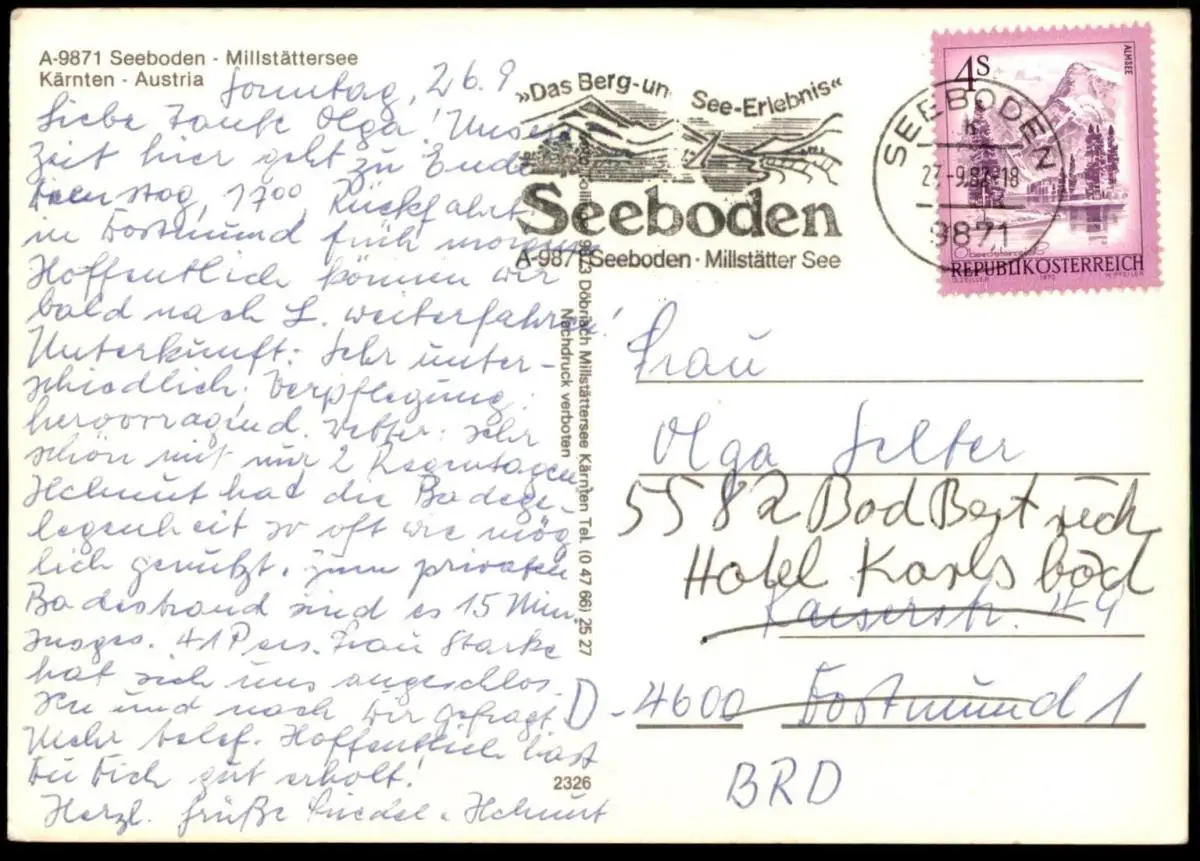 A-9871 Seeboden · Millstättersee
Kärnten · Austria
Sonntag, 26.9
Liebe Tante Olga! Unsere
Zeit hier geht zu Ende
Dienstag, 17⁰⁰ Rückfahrt.
in Dortmund früh morgens
Hoffentlich können wir
bald nach L. weiterfahren!
Unterkunft: Sehr unter-
schiedlich; Verpflegung:
hervorragend. Wetter: sehr
schön mit nur 2 Regentagen
Helmut hat die Badege-
legenheit so oft wie mög
lich genutzt. Zum privaten
Badestrand sind es 15 Min.
insges. 41 Pers. Frau Starke
hat sich uns angeschlos-
sen und nach Dir gefragt.
Mehr telef. Hoffentlich hast
Du Dich gut erholt!
Herzl. Grüße Friedel + Helmut
9873 Döbriach Millstättersee Kärnten Tel. (0 47 66) 25 27
Nachdruck verboten
2326
»Das Berg-un See-Erlebnis«
Seeboden
A-9871 Seeboden · Millstätter See
SEEBODEN
27.-9.82-18
9871
4S
ALMSEE
Oberösterreich
REPUBLIK ÖSTERREICH
1973
Frau
Olga Selter
5582 Bad Bertrich
Hotel Karlsbad
Kaiserstr. 49
D-4600 Dortmund 1
BRD